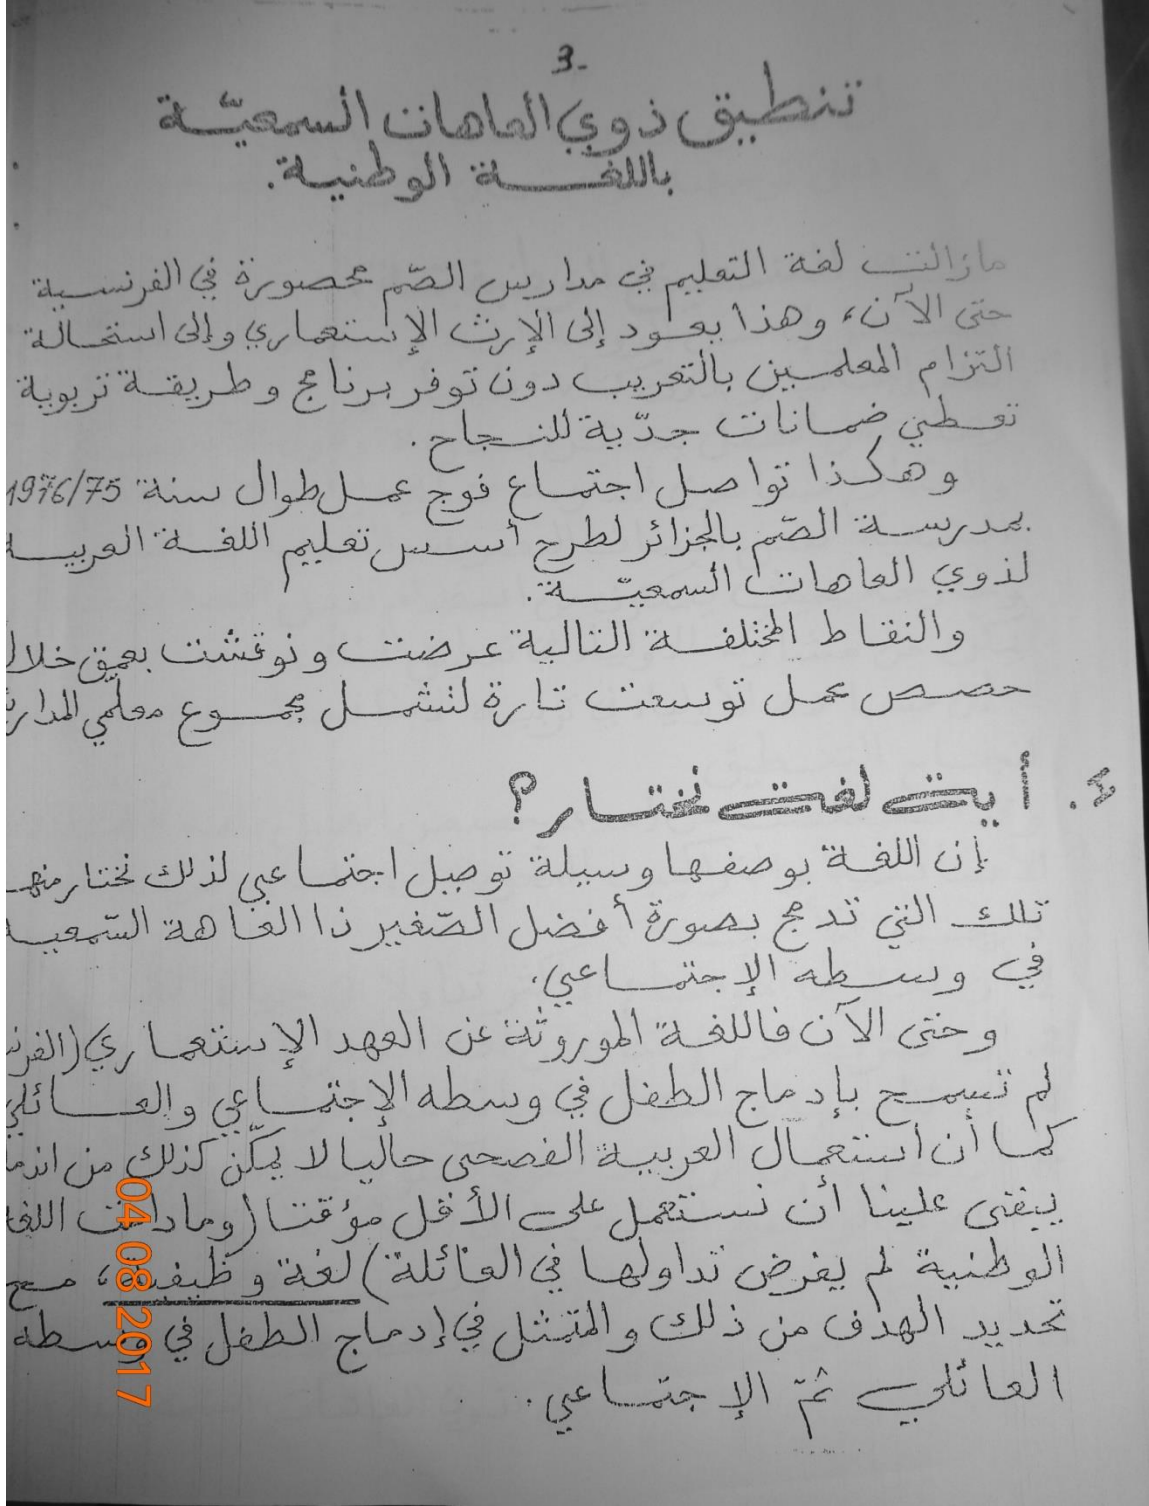 3-
تنطيق ذوي العاهات السمعيّة
باللغة الوطنية.
مازالت لغة التعليم في مدارس الصّم محصورة في الفرنسية
حتى الآن، وهذا يعود إلى الإرث الإستعماري وإلى استحالة
التزام المعلمين بالتعريب دون توفر برنامج وطريقة تربوية
تعطي ضمانات جدّية للنجاح.
وهكذا تواصل اجتماع فوج عمل طوال سنة 1976/75
بمدرسة الصّم بالجزائر لطرح أسس تعليم اللغة العربيـ
لذوي العاهات السمعيّة.
والنقاط المختلفة التالية عرضت ونوقشت بعمق خلال
حصص عمل توسعت تارة لتشمل مجموع معلمي المدار
I. أيت لغت نختار؟
إن اللغة بوصفها وسيلة توصيل اجتماعي لذلك نختار منها
تلك التي تدمج بصورة أفضل الصّغير ذا العاهة السّمعيـ
في وسطه الإجتماعي.
وحتى الآن فاللغة الموروثة عن العهد الإستعماري (الفرنـ
لم تسمح بإدماج الطفل في وسطه الإجتماعي والعائلي
كما أن استعمال العربية الفصحى حاليا لا يمكّن كذلك من اندما
يبقى علينا أن نستعمل على الأقل مؤقتا (ومادامت اللغا
الوطنية لم يفرض تداولها في العائلة) لغة وظيفية، مع
تحديد الهدف من ذلك والمتمثل في إدماج الطفل في وسطه
العائلي ثمّ الإجتماعي.
04 08 2017